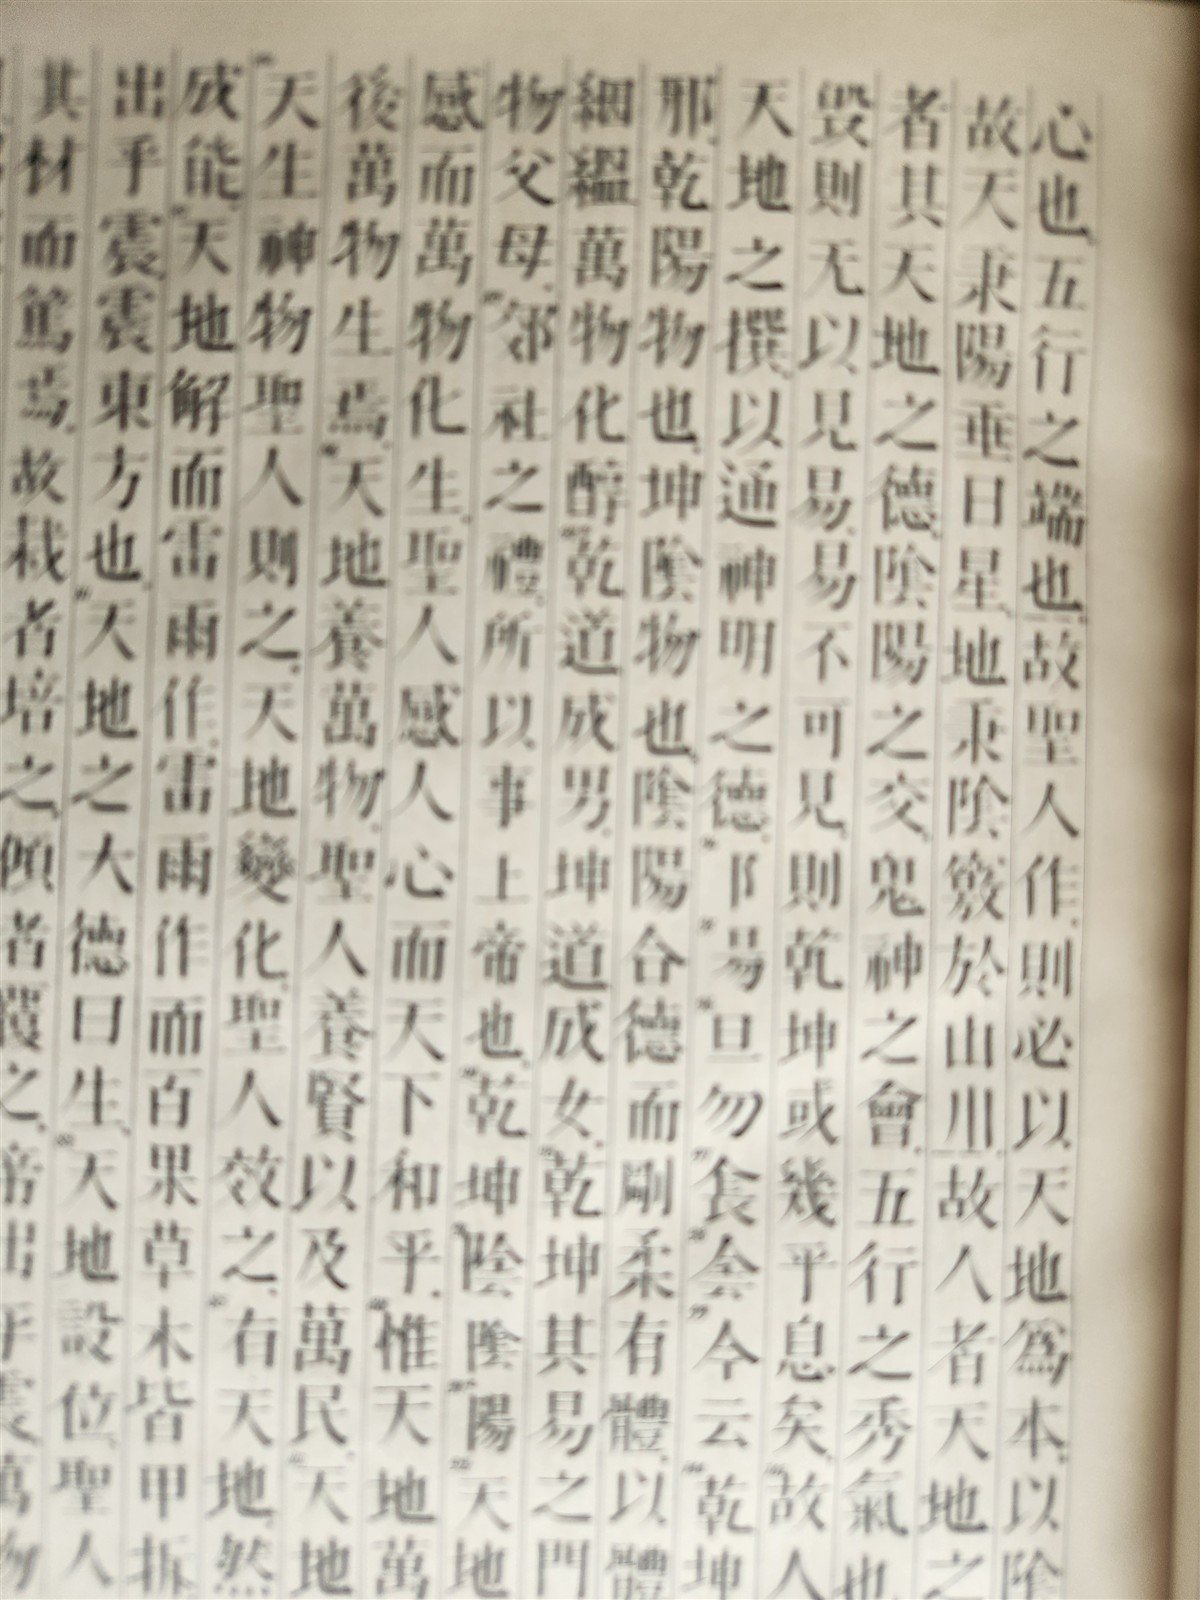 心也、五行之端也、故聖人作、則必以天地爲本、以陰
故天秉陽垂日星、地秉陰竅於山川、故人者天地之
者其天地之德、陰陽之交、鬼神之會、五行之秀氣也
毀則无以見易、易不可見、則乾坤或幾乎息矣、故人
天地之撰、以通神明之德、易旦勿 侌今云乾坤
邪、乾陽物也、坤陰物也、陰陽合德而剛柔有體、以體
絪縕萬物化醇、乾道成男、坤道成女、乾坤其易之門
物父母、郊社之禮、所以事上帝也、乾坤陰陰陽天地
感而萬物化生、聖人感人心而天下和平、惟天地萬
後萬物生焉、天地養萬物、聖人養賢以及萬民、天地
天生神物聖人則之、天地變化、聖人效之、右天地、然
成能、天地解而雷雨作、雷雨作而百果草木皆甲拆、
出乎震、震東方也、天地之大德曰生、天地設位、聖人
其材而篤焉、故栽者培之、傾者覆之、帝出乎震、萬物